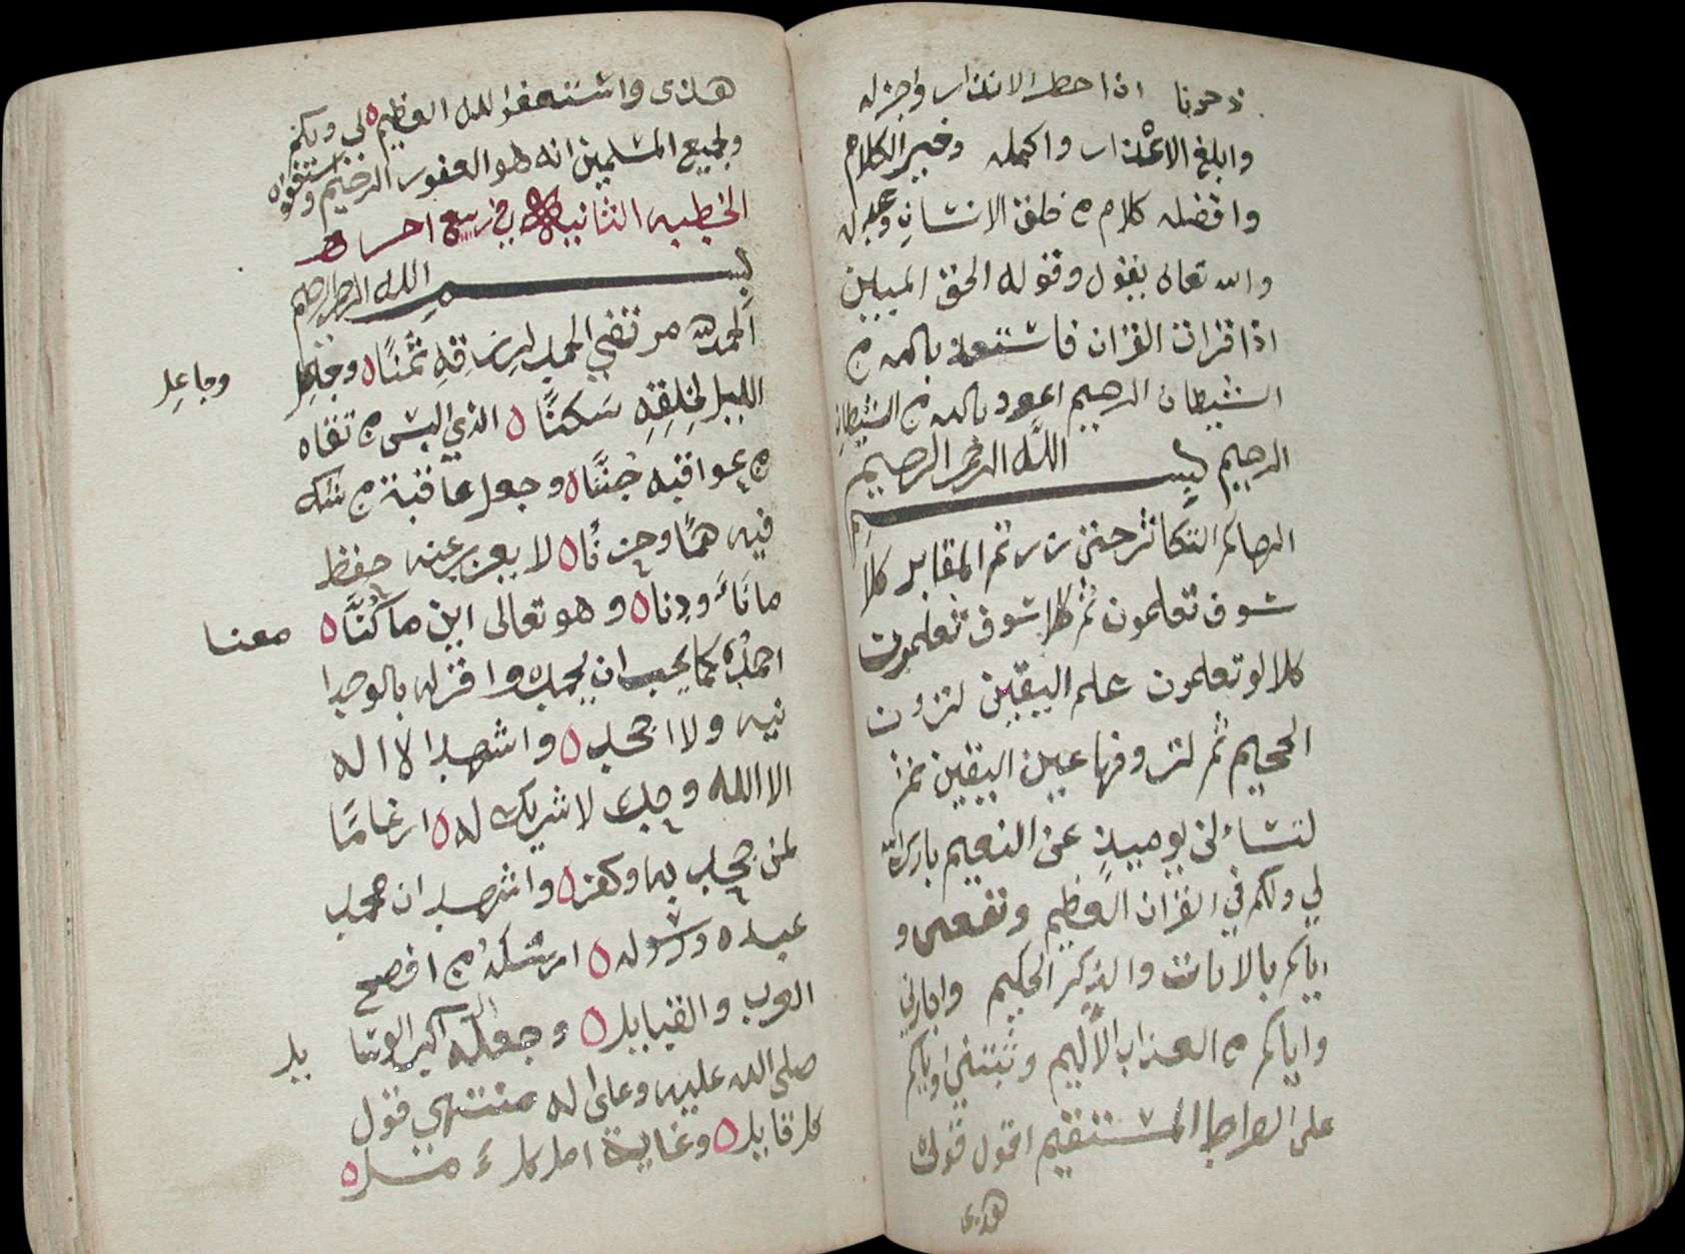 وابلغ الاعْذار واكمله وخير الكلام
وافضله كلام خلق الانسان وعدله
والله تعالى يقول وقوله الحق المبين
اذا قرات القران فاستعذ بالله من
الشيطان الرجيم اعوذ بالله من الشيطان
الرجيم بِسْمِ اللَّه الرحمن الرحيم
الهاكم التكاثر حتى زرتم المقابر كلا
سوف تعلمون ثم كلا سوف تعلمون
كلا لو تعلمون علم اليقين لترون
الجحيم ثم لترونها عين اليقين ثم
لتسالن يوميذٍ عن النعيم بارك الله
لي ولكم في القران العظيم ونفعنى و
اياكم بالايات والذِكر الحكيم واجارني
واياكم من العذاب الأليم وثبتني واياكم
على الصراط المستقيم اقول قولى
هذى
هذى واستغفر الله العظيم لى ولكم
ولجميع المسلمين انه هو الغفور الرحيم
الخطبه الثانيه في ربيع اخر
بِسْمِ الله الرحمن الرحيم
الحمد لله مرتضي الحمد لرزقهِ ثمنًا وجاعل
وجاعِل
الليل لخلقِهِ سَكنًا الذي البس من تقاه
من عواقبه جُنَنًا وجعل عاقبة من شكه
فيه همًا وحزنًا لا يعزب عنه حفظ
ما نَاءَ ودنا وهو تعالى اين ما كُنَّا معنا
احمدُه كما يجب ان يحمد واقر له بالوحدا
نيه ولا اجحد واشهد ان لا اله
الا الله وحده لا شريك له ارغامًا
لمن جحد به وكفر واشهد ان محمد
عبده ورسوله ارسَلَهُ من افصح
العرب والقبايل وجعله اكبر الوسا يل
صلى الله عليه وعلى اله منتهى قول
كل قايل وغاية امل كل